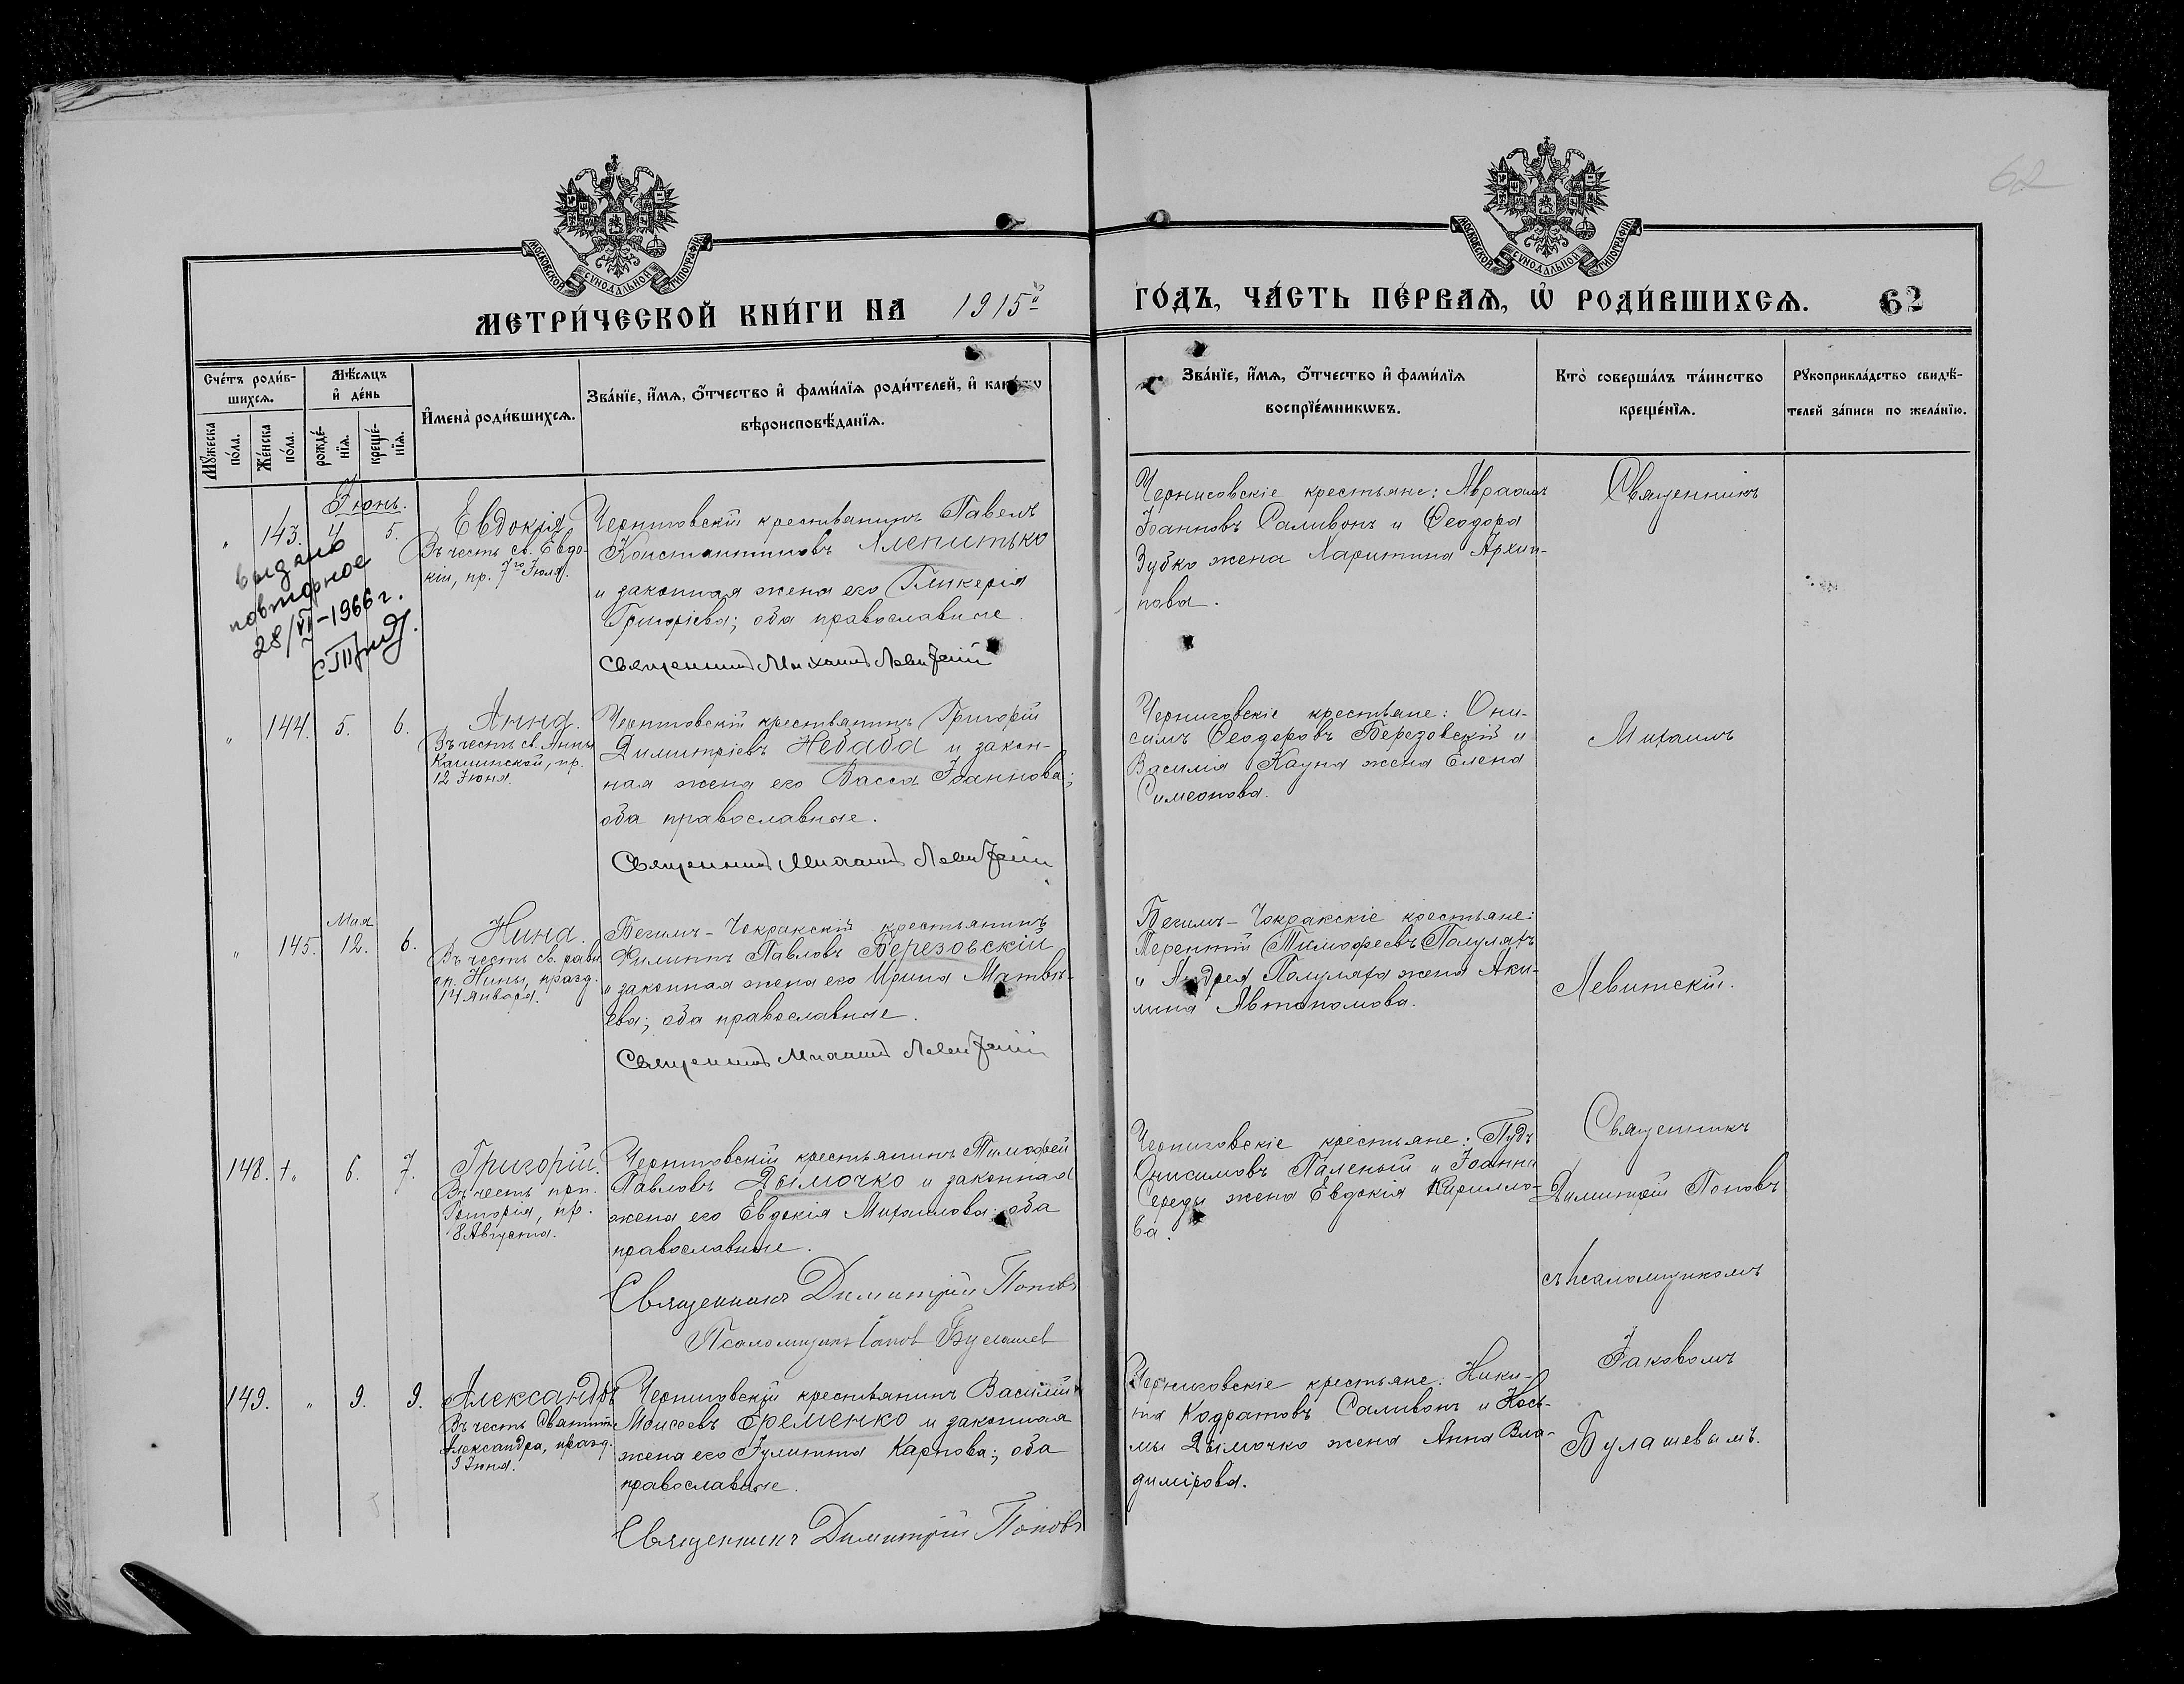 62
МОСКОВСКОЙ СѴНОДАЛЬНОЙ ТИПОГРАФІИ
МОСКОВСКОЙ СѴНОДАЛЬНОЙ ТИПОГРАФІИ
МЕТРИ́ЧЕСКОЙ КНИ́ГИ НА 1915й
ГО́ДЪ, ЧА́СТЬ ПЕ́РВАѦ, Ѽ РОДИ́ВШИХСѦ. 62
Сче́тъ роди́в-
шихсѧ.
Мꙋ́жеска
по́ла.
Же́нска
по́ла.
Мѣ́сѧцъ
и҆ де́нь
рожде́-
нїѧ.
креще́-
нїѧ.
И҆мена̀ роди́вшихсѧ.
Зва́нїе, и҆́мѧ, ѻ҆́тчество и҆ фами́лїѧ роди́телей, и҆
вѣроисповѣ́данїѧ.
Зва́нїе, и҆́мѧ, ѻ҆́тчество и҆ фами́лїѧ
воспрїе́мникѡвъ.
Кто̀ соверша́лъ та́инство
креще́нїѧ.
Рꙋкоприкла́дство свидѣ́-
телей за́писи по жела́нїю.
Іюнь.
" 143. 4 5.
Евдокія.
Въ честь св. Евдо-
кіи, пр. 7го Іюля.
Черниговскій крестьянинъ Павелъ
Константиновъ Алепитько
и законная жена его Гликерія
Григоріева; оба православные.
Священникъ Михаилъ Левитскій
Черниговскіе крестьяне: Авраамъ
Іоанновъ Саливонъ и Ѳеодора
Зубко жена Харитина Архип-
пова.
Священникъ
выдано
повторное
28/VI-1966 г.
" 144. 5. 6.
Анна.
Въ честь св. Анны
Кашинской, пр.
12 Іюня.
Черниговскій крестьянинъ Григорій
Димитріевъ Небаба и закон-
ная жена его Васса Іоаннова;
оба православные.
Священникъ Михаилъ Левитскій
Черниговскіе крестьяне: Они-
симъ Ѳеодоровъ Березовскій и
Василія Кауна жена Елена
Симеонова.
Михаилъ
" 145. Мая 12. 6.
Нина.
Въ честь св. равн
ап. Нины, празд.
14 Января.
Бегимъ-Чокракскій крестьянинъ
Филиппъ Павловъ Березовскій
и законная жена его Ирина Матвѣ-
ева; оба православные.
Священникъ Михаилъ Левитскій
Бегимъ-Чокракскіе крестьяне:
Терентій Тимофеевъ Полуляхъ
и Андрея Полуляха жена Аки-
лина Автономова.
Левитскій.
148. † " 6. 7.
Григорій.
Въ честь прп.
Григорія, пр.
8 Августа.
Черниговскій крестьянинъ Тимофей
Павловъ Дымочко и законная
жена его Евдокія Михаилова; оба
православные.
Священникъ Димитрій Поповъ
Псаломщикъ Іаков Булашев
Черниговскіе крестьяне: Пудъ
Онисимовъ Паленый и Іоанна
Середы жена Евдокія Кирилло-
ва.
Священникъ
Димитрій Поповъ
съ псаломщикомъ
Іаковомъ
Булашевымъ.
149. " 9. 9.
Александръ
Въ честь Святит.
Александра, празд.
9 Іюня.
Черниговскій крестьянинъ Василій
Моисеевъ Еременко и законная
жена его Іулитта Карпова; оба
православные.
Священникъ Димитрій Поповъ
Черниговскіе крестьяне: Ники-
та Кодратовъ Саливонъ и Кось-
мы Дымочко жена Анна Вла-
димірова.